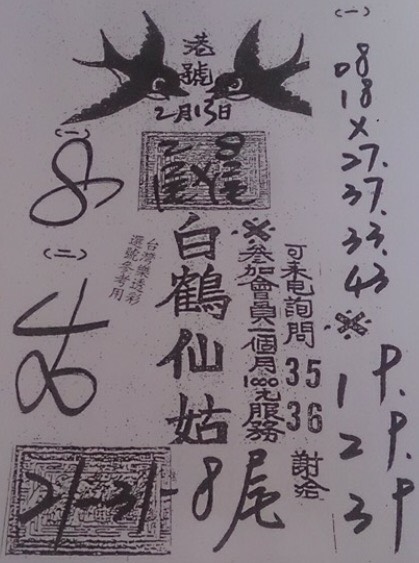 港號
2月13日
(一)
08
18
X
27.
37.
33.
43
※
1P.
2P.
3P
(一)
8
2 8
可来电詢問 35 36 謝洽
※參加會員一個月1000元服務
白鶴仙姑
台灣樂透彩
選號參考用
(二)
21-31-8尾